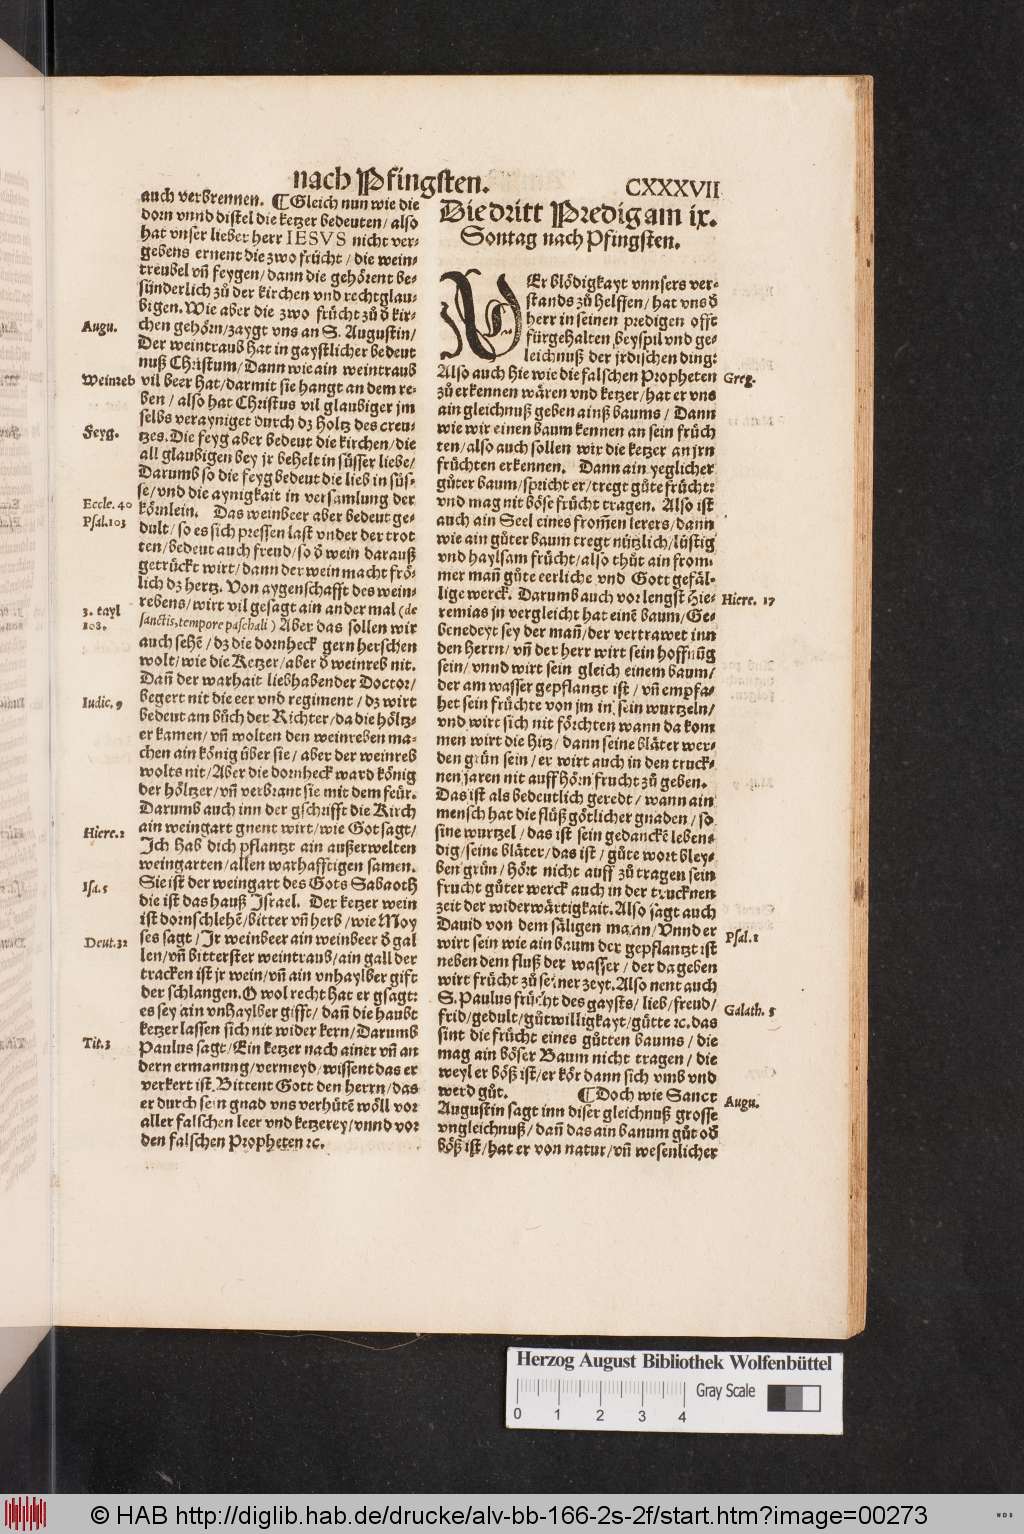 nach Pfingsten.
CXXXVII
auch verbrennen. ¶Gleich nun wie die
dorn vnnd distel die ketzer bedeuten/ also
hat vnser lieber herr IESVS nicht ver⸗
gebens ernent die zwo frücht / die wein⸗
treubel vñ feygen/ dann die gehörent be⸗
sünderlich zů der kirchen vnd rechtglau⸗
bigen. Wie aber die zwo frücht zů d̄ kir⸗
Augu.
chen gehörn/ zaygt vns an S. Augustin/
Der weintraub hat in gaystlicher bedeut
nuß Christum/ Dann wie ain weintraub
Weinreb
vil beer hat/ darmit sie hangt an dem re⸗
ben / also hat Christus vil glaubiger jm
selbs verayniget durch dz holtz des creu⸗
Feyg.
tzes. Die feyg aber bedeut die kirchen/ die
all glaubigen bey jr behelt in süsser liebe/
Darumb so die feyg bedeut die lieb in süs⸗
se/ vnd die aynigkait in versamlung der
Eccle. 40
körnlein. Das weinbeer aber bedeut ge⸗
Psal.103
dult/ so es sich pressen last vnder der trot
ten/ bedeut auch freud/ so d̄ wein darauß
getrückt wirt/ dann der wein macht frö⸗
lich dz hertz. Von aygenschafft des wein⸗
3. tayl
rebens/ wirt vil gesagt ain ander mal (de
108.
sanctis, tempore paschali) Aber das sollen wir
auch sehē/ dz die dornheck gern herschen
wolt/ wie die Ketzer/ aber d̄ weinreb nit.
Dañ der warhait liebhabender Doctor/
Iudic. 9
begert nit die eer vnd regiment/ dz wirt
bedeut am bůch der Richter/ da die höltz⸗
er kamen/ vñ wolten den weinreben ma⸗
chen ain könig über sie/ aber der weinreb
wolts nit/ Aber die dornheck ward könig
der höltzer/ vñ verbrant sie mit dem feür.
Darumb auch inn der gschrifft die Kirch
Hiere.2
ain weingart gnent wirt/ wie Got sagt/
Ich hab dich pflantzt ain außerwelten
weingarten/ allen warhafftigen samen.
Isa.5
Sie ist der weingart des Gots Sabaoth
die ist das hauß Israel. Der ketzer wein
ist dornschlehē/ bitter vñ herb/ wie Moy
Deut.32
ses sagt/ Ir weinbeer ain weinbeer d̄ gal
len/ vñ bitterster weintraub/ ain gall der
tracken ist jr wein/ vñ ain vnhaylber gift
der schlangen. O wol recht hat er gsagt:
es sey ain vnhaylber gifft/ dañ die haubt
ketzer lassen sich nit wider kern/ Darumb
Tit.3
Paulus sagt/ Ein ketzer nach ainer vñ an
dern ermanung/ vermeyd/ wissent das er
verkert ist. Bittent Gott den herrn/ das
er durch sein gnad vns verhütē wöll vor
aller falschen leer vnd ketzerey/ vnnd vor
den falschen Propheten ꝛc.
Die dritt Predig am ix.
Sontag nach Pfingsten.
DEr blödigkayt vnnsers ver⸗
stands zů helffen/ hat vns d̄
herr in seinen predigen offt
fürgehalten beyspil vnd ge⸗
leichnuß der jrdischen ding:
Also auch hie wie die falschen Propheten
Greg.
zů erkennen wären vnd ketzer/ hat er vns
ain gleichnuß geben ainß baums / Dann
wie wir einen baum kennen an sein früch
ten/ also auch sollen wir die ketzer an jrn
früchten erkennen. Dann ain yeglicher
gůter baum/ spricht er/ tregt gůte frücht:
vnd mag nit böse frücht tragen. Also ist
auch ain Seel eines frommen lerers/ dann
wie ain gůter baum tregt nützlich/ lüstig
vnd haylsam frücht/ also thůt ain from⸗
mer mañ gůte eerliche vnd Gott gefäl⸗
lige werck. Darumb auch vor lengst Hie⸗
Hiere. 17
remias jn vergleicht hat einē baum/ Ge⸗
benedeyt sey der mañ/ der vertrawet inn
den Herrn/ vñ der herr wirt sein hoffnūg
sein/ vnnd wirt sein gleich einem baum/
der am wasser gepflantzt ist / vñ empfa⸗
het sein früchte von jm in sein wurtzeln/
vnd wirt sich nit förchten wann da kom
men wirt die hitz/ dann seine bläter wer⸗
den grün sein/ er wirt auch in den truck⸗
nen jaren nit auffhörn frucht zů geben.
Das ist als bedeutlich geredt/ wann ain
mensch hat die flüß götlicher gnaden/ so
sine wurtzel / das ist sein gedanckē leben⸗
dig/ seine bläter/ das ist / gůte wort bley⸗
ben grün/ hört nicht auff zů tragen sein
frucht gůter werck auch in der trucknen
zeit der widerwärtigkait. Also sagt auch
Dauid von dem säligen mann/ Vnnd er
Psal.1
wirt sein wie ain baum der gepflantzt ist
neben dem fluß der wasser / der da geben
wirt frücht zů seiner zeyt. Also nent auch
S. Paulus frücht des gaysts/ lieb/ freud/
Galath. 5
frid/ gedult/ gůtwilligkayt/ gütte ꝛc. das
sint die frücht eines gůtten baums / die
mag ain böser Baum nicht tragen / die
weyl er böß ist/ er kör dann sich vmb vnd
werd gůt. ¶Doch wie Sanct
Augu.
Augustin sagt inn diser gleichnuß grosse
vngleichnuß/ dañ das ain banum gůt od̄
böß ist/ hat er von natur/ vñ wesenlicher
Herzog August Bibliothek Wolfenbüttel
Gray Scale
0 1 2 3 4
© HAB http://diglib.hab.de/drucke/alv-bb-166-2s-2f/start.htm?image=00273